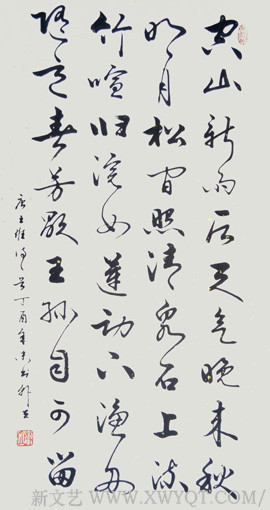 空山新雨后天气晚来秋
明月松间照清泉石上流
竹喧归浣女莲动下渔舟
随意春芳歇王孙自可留
唐王维诗一首丁酉年
新文艺 WWW.XWYQT.COM/